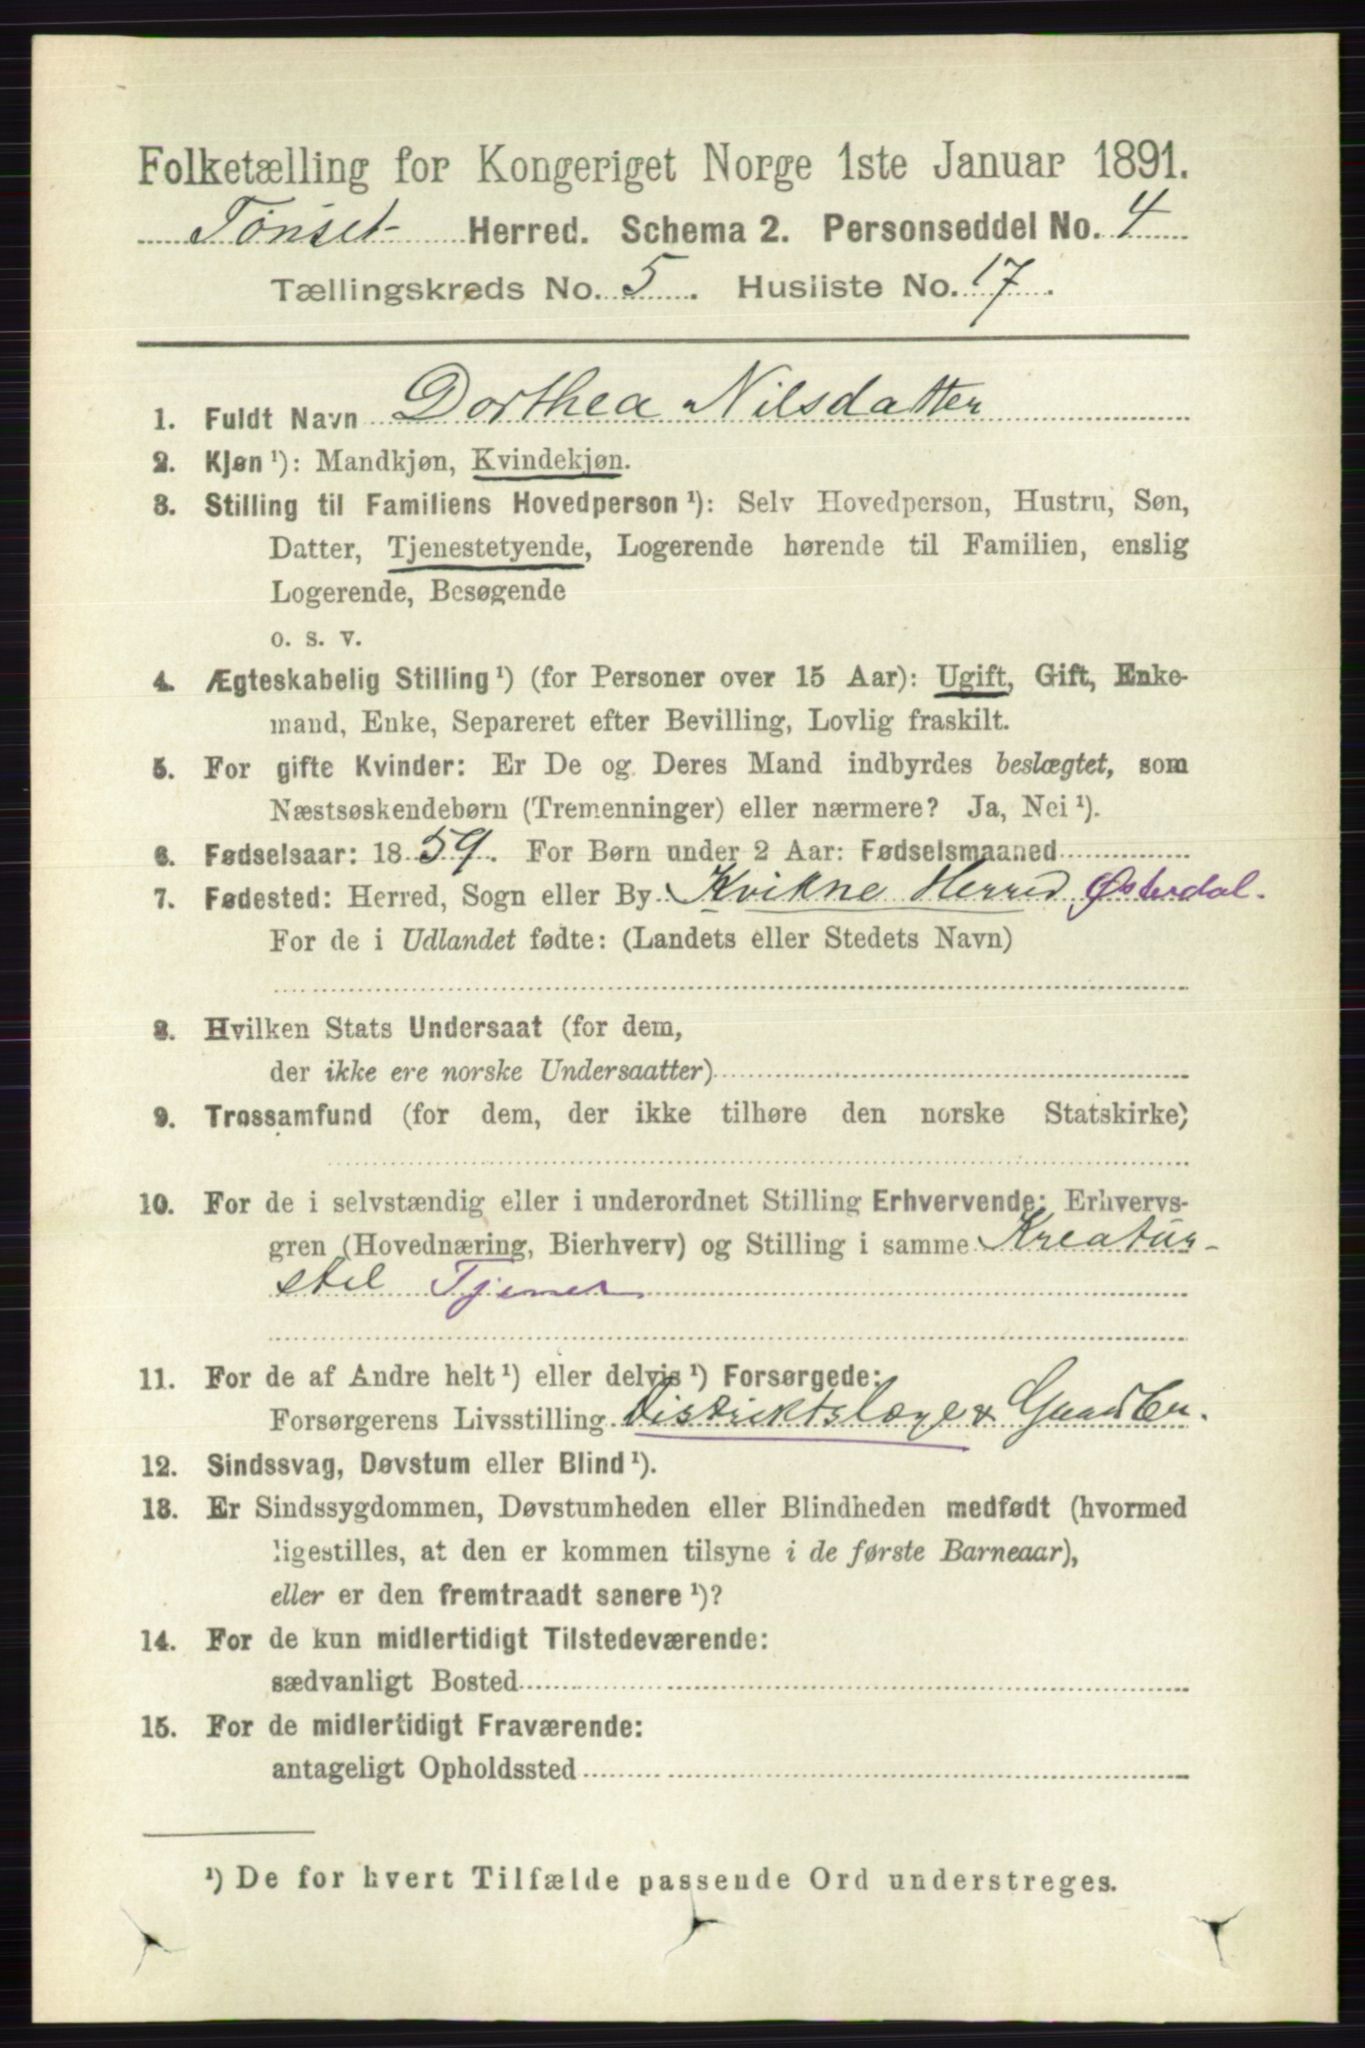 Folketælling for Kongeriget Norge 1ste Januar 1891.
Tønset Herred. Schema 2. Personseddel No. 4
Tællingskreds No. 5. Husliste No. 17.
1. Fuldt Navn Dorthea Nilsdatter
2. Kjøn ¹): Mandkjøn, Kvindekjøn.
3. Stilling til Familiens Hovedperson ¹): Selv Hovedperson, Hustru, Søn,
Datter, Tjenestetyende, Logerende hørende til Familien, enslig
Logerende, Besøgende
o. s. v.
4. Ægteskabelig Stilling ¹) (for Personer over 15 Aar): Ugift, Gift, Enke-
mand, Enke, Separeret efter Bevilling, Lovlig fraskilt.
5. For gifte Kvinder: Er De og Deres Mand indbyrdes beslægtet, som
Næstsøskendebørn (Tremenninger) eller nærmere? Ja, Nei ¹).
6. Fødselsaar: 1859. For Børn under 2 Aar: Fødselsmaaned
7. Fødested: Herred, Sogn eller By Kvikne Herred Østerdal.
For de i Udlandet fødte: (Landets eller Stedets Navn)
8. Hvilken Stats Undersaat (for dem,
der ikke ere norske Undersaatter)
9. Trossamfund (for dem, der ikke tilhøre den norske Statskirke)
10. For de i selvstændig eller i underordnet Stilling Erhvervende: Erhvervs-
gren (Hovednæring, Bierhverv) og Stilling i samme Kreatur-
stel Tjener
11. For de af Andre helt ¹) eller delvis ¹) Forsørgede:
Forsørgerens Livsstilling Distriktslæge &
12. Sindssvag, Døvstum eller Blind ¹).
13. Er Sindssygdommen, Døvstumheden eller Blindheden medfødt (hvormed
ligestilles, at den er kommen tilsyne i de første Barneaar),
eller er den fremtraadt senere ¹)?
14. For de kun midlertidigt Tilstedeværende:
sædvanligt Bosted
15. For de midlertidigt Fraværende:
antageligt Opholdssted
¹) De for hvert Tilfælde passende Ord understreges.